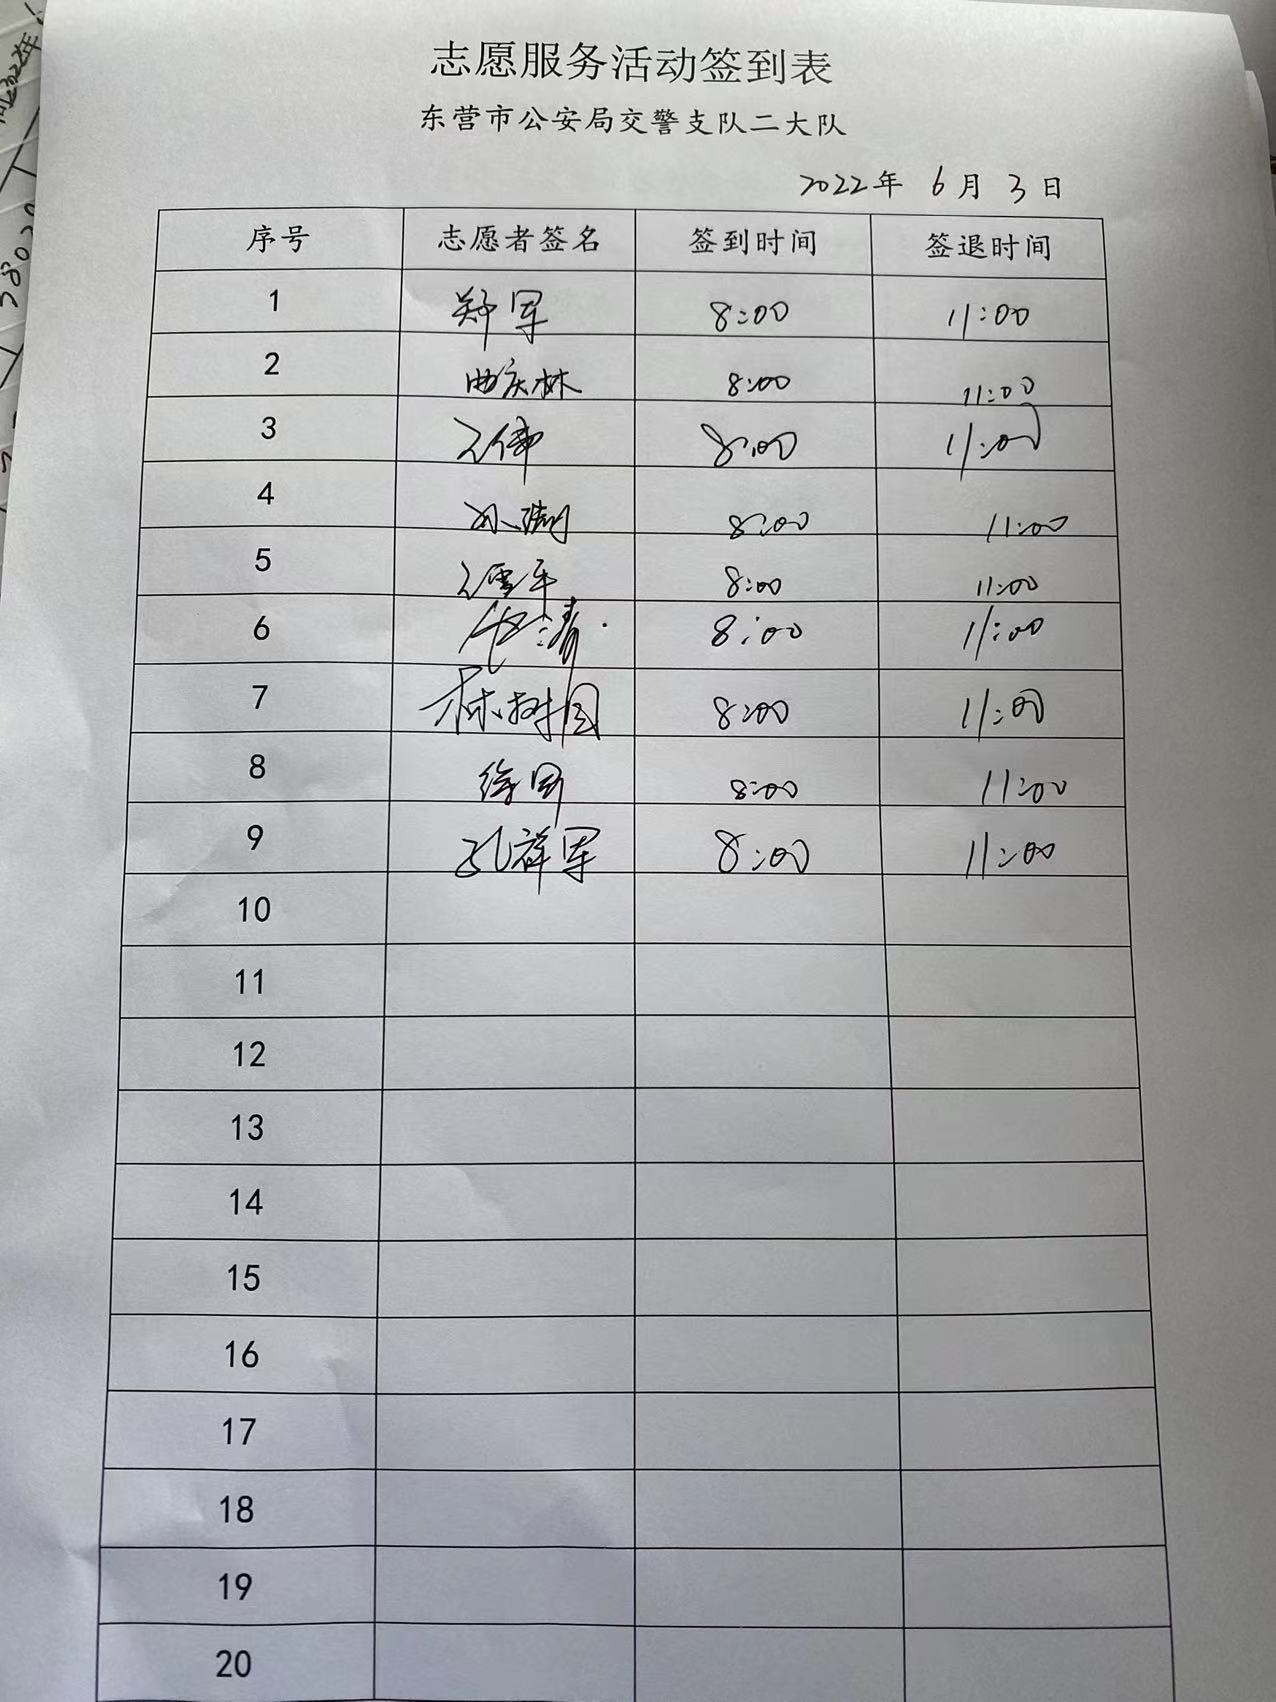 志愿服务活动签到表
东营市公安局交警支队二大队
2022年 6月 3日
序号 志愿者签名 签到时间 签退时间
1 郑军 8:00 11:00
2 曲庆林 8:00 11:00
3 王伟 8:00 11:00
4 8:00 11:00
5 8:00 11:00
6 8:00 11:00
7 林树国 8:00 11:00
8 8:00 11:00
9 孔祥军 8:00 11:00
10
11
12
13
14
15
16
17
18
19
20